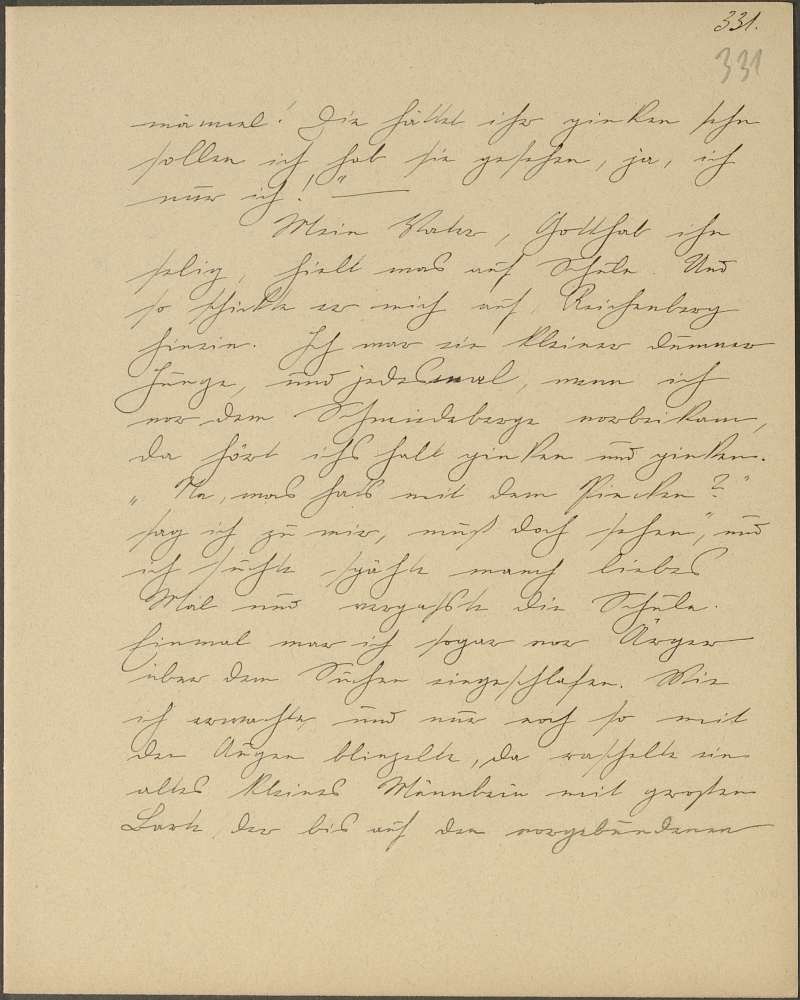 331.
331
mänirl! Die hättet ihr pinken sehn
sollen ich hab sie gesehen, ja, ich
nur ich!" —
Mein Vater, Gotthab ihn
selig, hielt was auf Schule. Und
so schickte er mich auf Reichenberg
hinein. Ich war ein kleiner dummer
Junge, und jedesmal, wenn ich
vor dem Schmiedeberge vorbeikam,
da hört ichs halt pinken und pinken.
"Na, was hats mit dem Pinken?"
sag ich zu mir, "mußt doch sehen", und
ich suchte spähte manch liebes
Mal und vergaßte die Schule.
Einmal war ich sogar vor Ärger
über dem Suchen eingeschlafen. Wie
ich erwachte, und nur noch so mit
den Augen blinzelte, da raschelte ein
altes kleines Männlein mit großem
Barte, der bis auf den vorgebundenen